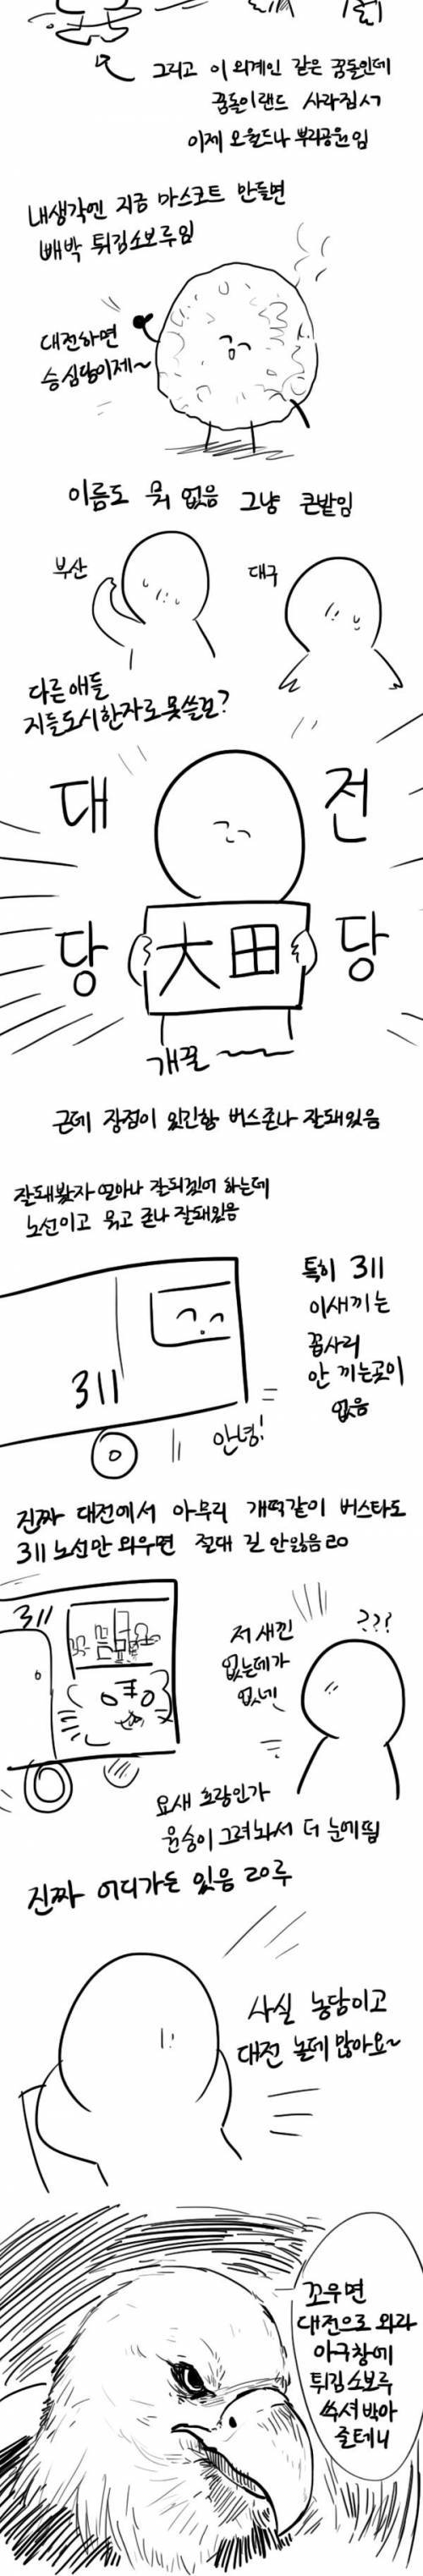 그리고 이 외계인 같은 꿈돌인데
꿈돌이랜드 사라짐ㅅㄱ
이제 오월드나 뿌리공원임
내생각엔 지금 마스코트 만들면
빼박 튀김소보루임
대전하면
승심당이제~
이름도 뭐 없음 그냥 큰밭임
부산
대구
다른애들
지들도시한자로못쓸껄?
대 전
당 당
大田
개꿀
근데 장점이 있긴함 버스존나 잘돼있음
잘돼봤자 얼마나 잘되겠어 하는데
노선이고 뭐고 존나 잘돼있음
특히 311
이새끼는
꼽사리
안 끼는곳이
없음
311
안녕!
진짜 대전에서 아무리 개떡같이 버스타도
311 노선만 외우면 절대 길 안잃음ㄹㅇ
311
저새낀
없는데가
없네
???
요새 호랑인가
원숭이 그려놔서 더 눈에띔
진짜 어디가든 있음 ㄹㅇ루
사실 농담이고
대전 놀데 많아요~
꼬우면
대전으로 와라
아구창에
튀김소보루
쑤셔박아
줄테니